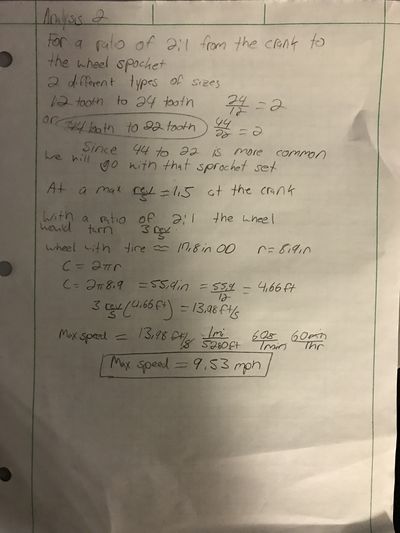 Analysis 2
For a ratio of 2:1 from the crank to
the wheel spocket
2 different types of sizes
12 tooth to 24 tooth 24/12 = 2
or 44 tooth to 22 tooth 44/22 = 2
Since 44 to 22 is more common
we will go with that sprocket set
At a max rev/s = 1.5 at the crank
With a ratio of 2:1 the wheel
would turn 3 rev/s
wheel with tire ≈ 17.8 in OD r = 8.9 in
C = 2πr
C = 2π8.9 = 55.9 in = 55.9/12 = 4.66 ft
3 rev/s (4.66 ft) = 13.98 ft/s
Max speed = 13.98 ft/s 1mi/5280ft 60s/1min 60min/1hr
Max speed = 9.53 mph